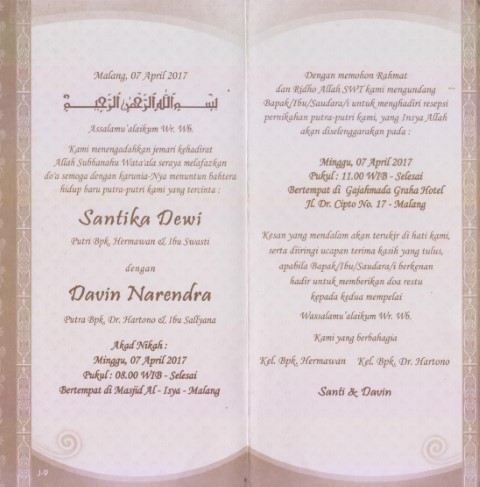 Malang, 07 April 2017
بِسْــمِ اللهِ الرَّحْمٰنِ الرَّحِيْمِ
Assalamu'alaikum Wr. Wb.
Kami menengadahkan jemari kehadirat
Allah Subhanahu Wata'ala seraya melafazkan
do'a semoga dengan karunia-Nya menuntun bahtera
hidup baru putra-putri kami yang tercinta :
Santika Dewi
Putri Bpk. Hermawan & Ibu Swasti
dengan
Davin Narendra
Putra Bpk. Dr. Hartono & Ibu Sallyana
Akad Nikah :
Minggu, 07 April 2017
Pukul : 08.00 WIB - Selesai
Bertempat di Masjid Al - Isya - Malang
J-9
Dengan memohon Rahmat
dan Ridho Allah SWT kami mengundang
Bapak/Ibu/Saudara/i untuk menghadiri resepsi
pernikahan putra-putri kami, yang Insya Allah
akan diselenggarakan pada :
Minggu, 07 April 2017
Pukul : 11.00 WIB - Selesai
Bertempat di Gajahmada Graha Hotel
Jl. Dr. Cipto No. 17 - Malang
Kesan yang mendalam akan terukir di hati kami,
serta diiringi ucapan terima kasih yang tulus,
apabila Bapak/Ibu/Saudara/i berkenan
hadir untuk memberikan doa restu
kepada kedua mempelai
Wassalamu'alaikum Wr. Wb.
Kami yang berbahagia
Kel. Bpk. Hermawan Kel. Bpk. Dr. Hartono
Santi & Davin